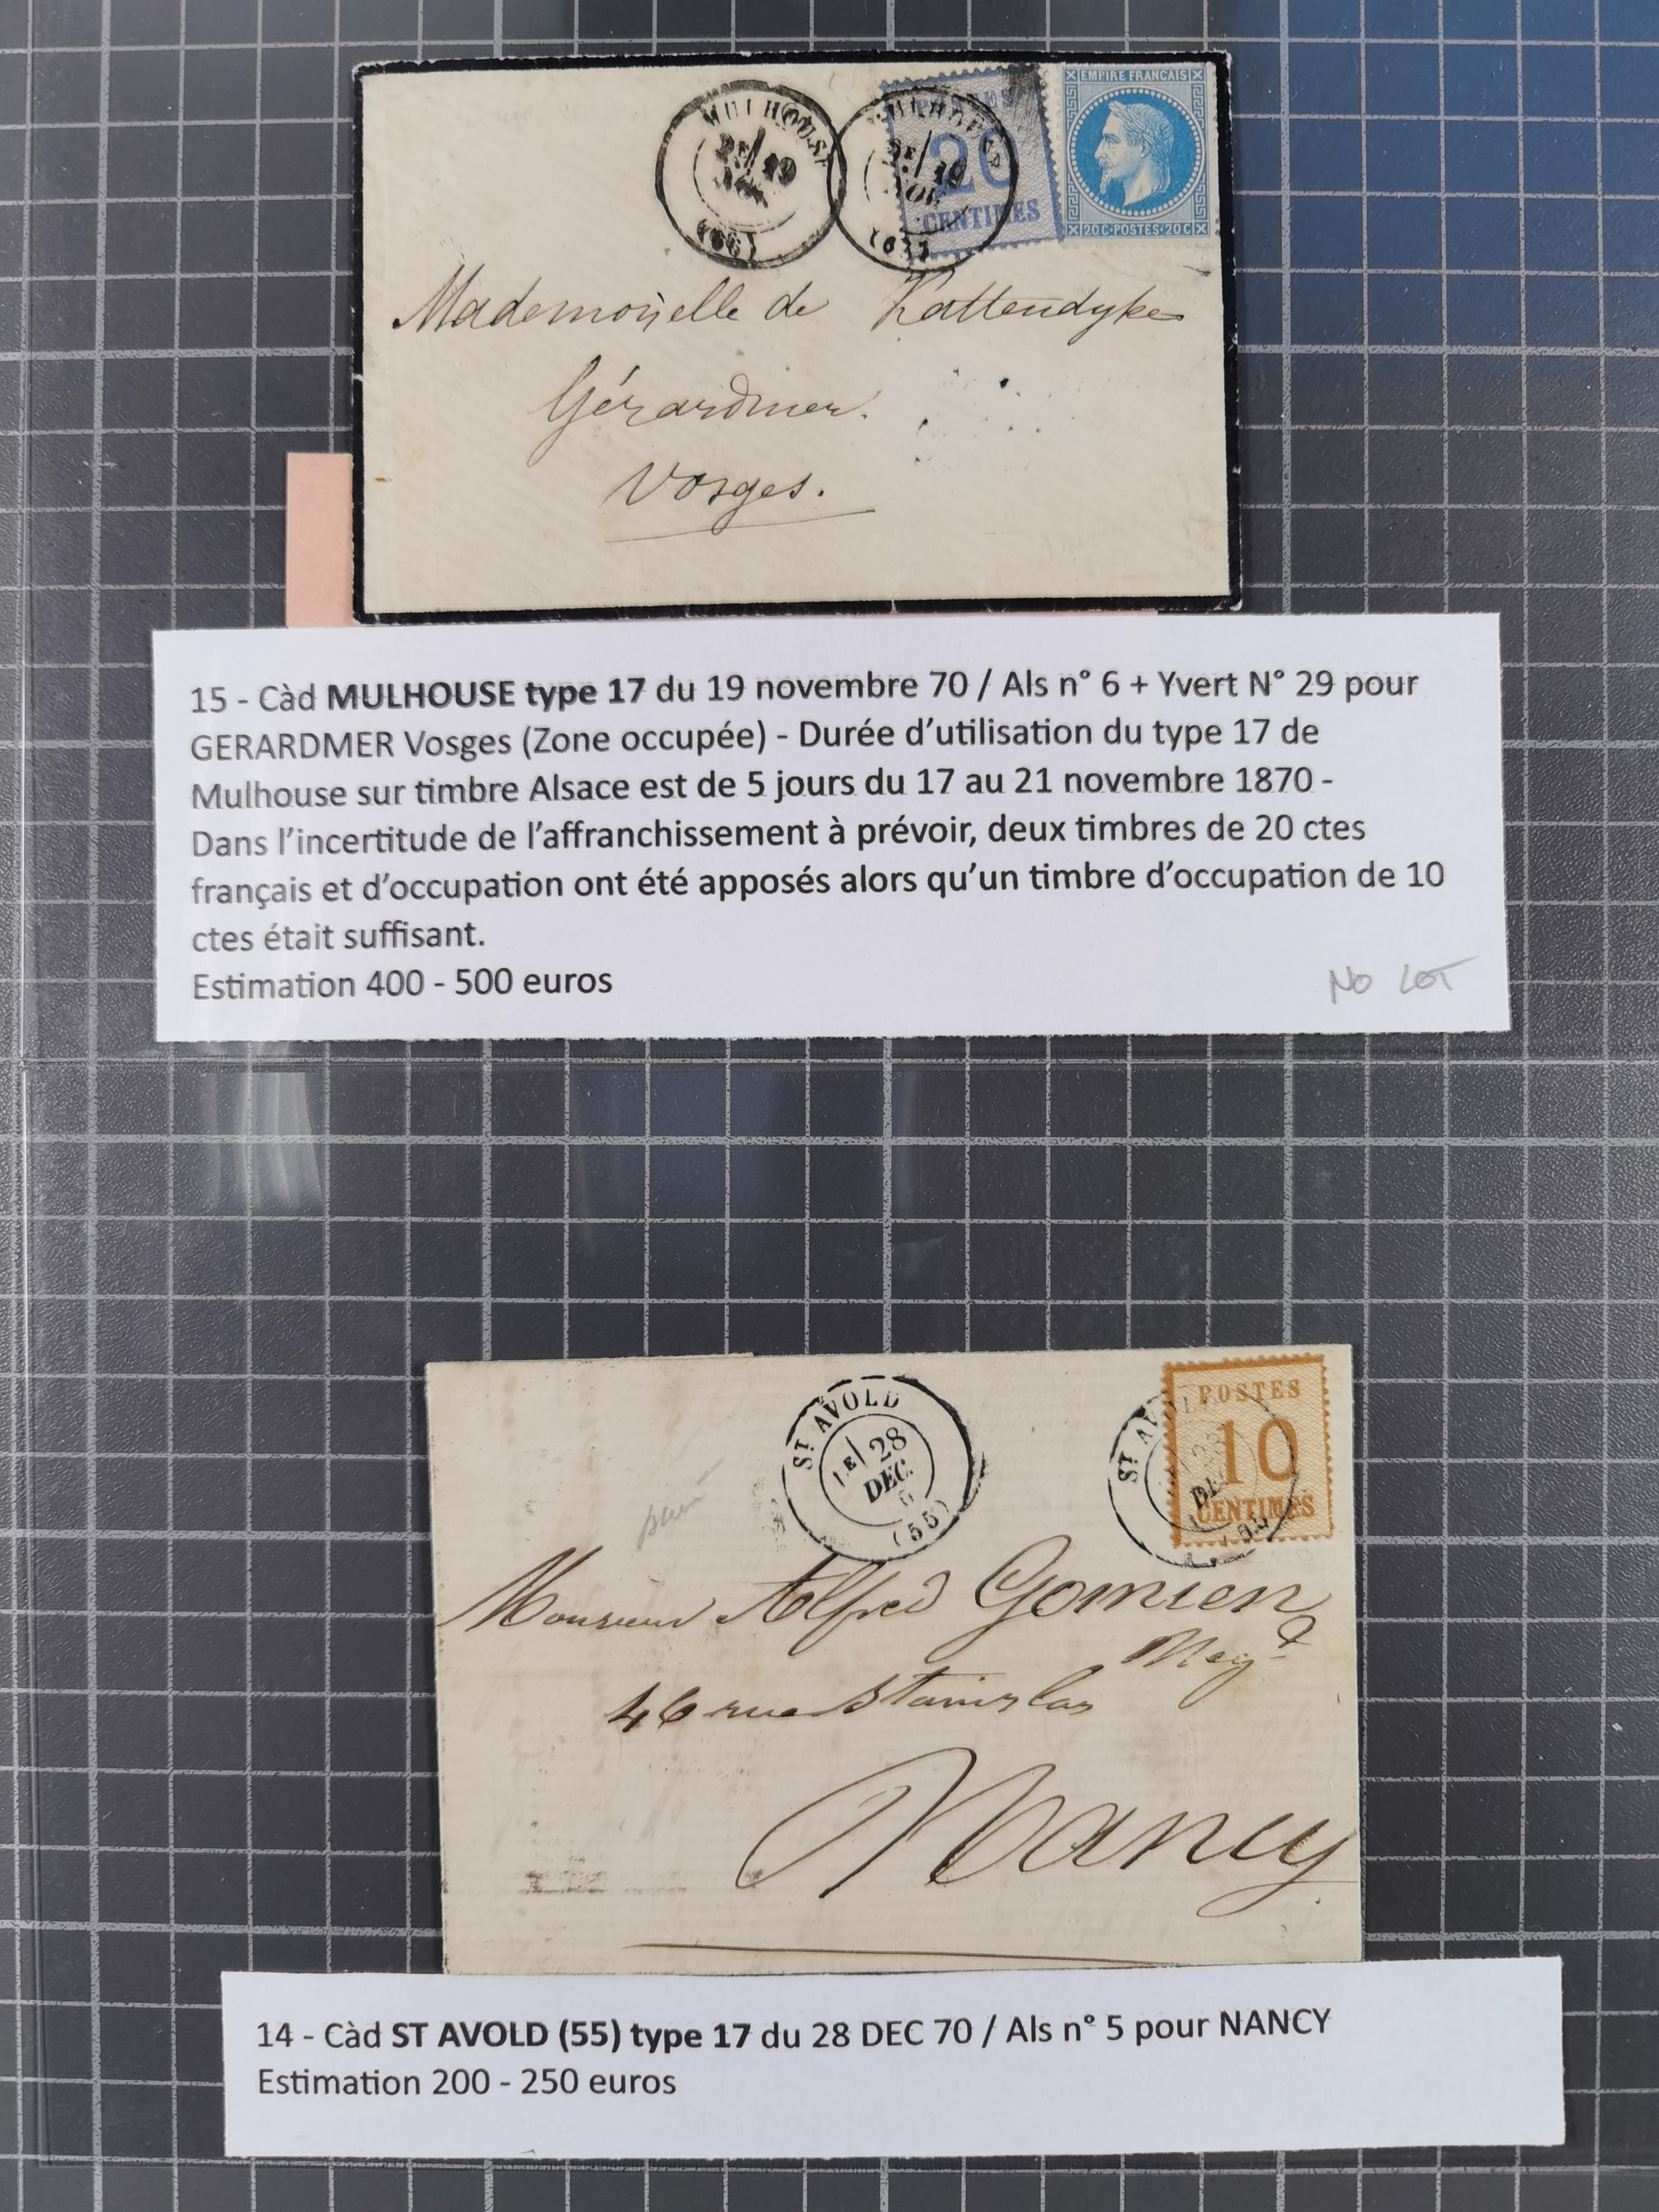 MULHOUSE
19
(66)
MULHOUSE
POSTES
20
CENTIMES
EMPIRE FRANÇAIS
20C·POSTES·20C
Mademoiselle de Kattendyke
Gérardmer.
Vosges.
15 - Càd MULHOUSE type 17 du 19 novembre 70 / Als n° 6 + Yvert N° 29 pour
GERARDMER Vosges (Zone occupée) - Durée d'utilisation du type 17 de
Mulhouse sur timbre Alsace est de 5 jours du 17 au 21 novembre 1870 -
Dans l'incertitude de l'affranchissement à prévoir, deux timbres de 20 ctes
français et d'occupation ont été apposés alors qu'un timbre d'occupation de 10
ctes était suffisant.
Estimation 400 - 500 euros
NO LOT
ST AVOLD
1E/ 28
DEC.
(55)
ST AV
POSTES
10
CENTIMES
Monsieur Alfred Gomien
Negt
46 rue Stanislas
Nancy
14 - Càd ST AVOLD (55) type 17 du 28 DEC 70 / Als n° 5 pour NANCY
Estimation 200 - 250 euros